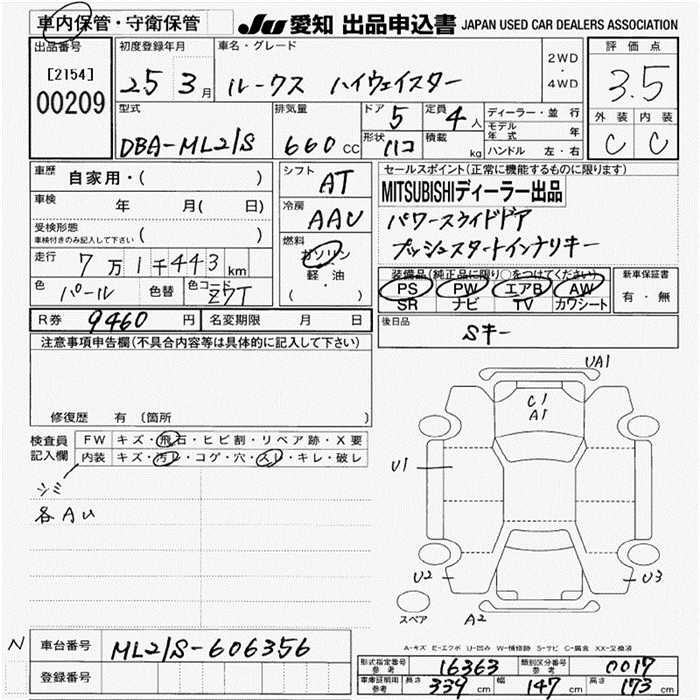 車内保管・守衛保管
JU 愛知 出品申込書 JAPAN USED CAR DEALERS ASSOCIATION
出品番号
[2154]
00209
初度登録年月
25 3月
車名・グレード
ルークス ハイウェイスター
2WD
・
4WD
評価点
3.5
外装 内装
C C
型式
DBA-ML21S
排気量
660 cc
ドア 5
形状 ハコ
定員 4人
積載 kg
ディーラー・並行
モデル年式 年
ハンドル 左・右
車歴 自家用・( )
車検 年 月( 日)
受検形態
車検付きのみ記入して下さい ( )
走行 7万1千443km
色 パール 色替 色コード Z7T
シフト AT
冷房 AAC
燃料 ガソリン
軽・油
( ・ )
セールスポイント(正常に機能するものに限ります)
MITSUBISHIディーラー出品
パワースライドドア
プッシュスタートインナリキー
装備品(純正品に限り○をつけてください)
PS PW エアB AW
SR ナビ TV カワシート
新車保証書
有・無
R券 9460円 名変期限 月 日
後日品
Sキー
注意事項申告欄(不具合内容等は具体的に記入して下さい)
修復歴 有 〔箇所 〕
検査員記入欄
FW キズ・飛石・ヒビ割・リペア跡・X要
内装 キズ・汚レ・コゲ・穴・スレ・キレ・破レ
シミ
各AU
UA1
C1
A1
U1
U2
U3
A2
スペア
A-キズ E-エクボ U-凹み W-補修跡 S-サビ C-腐食 XX-交換済
N 車台番号 ML21S-606356
登録番号
型式指定番号 参考 16363 類別区分番号 参考 0017
車庫証明用 参考 長さ 339cm 幅 147cm 高さ 173cm